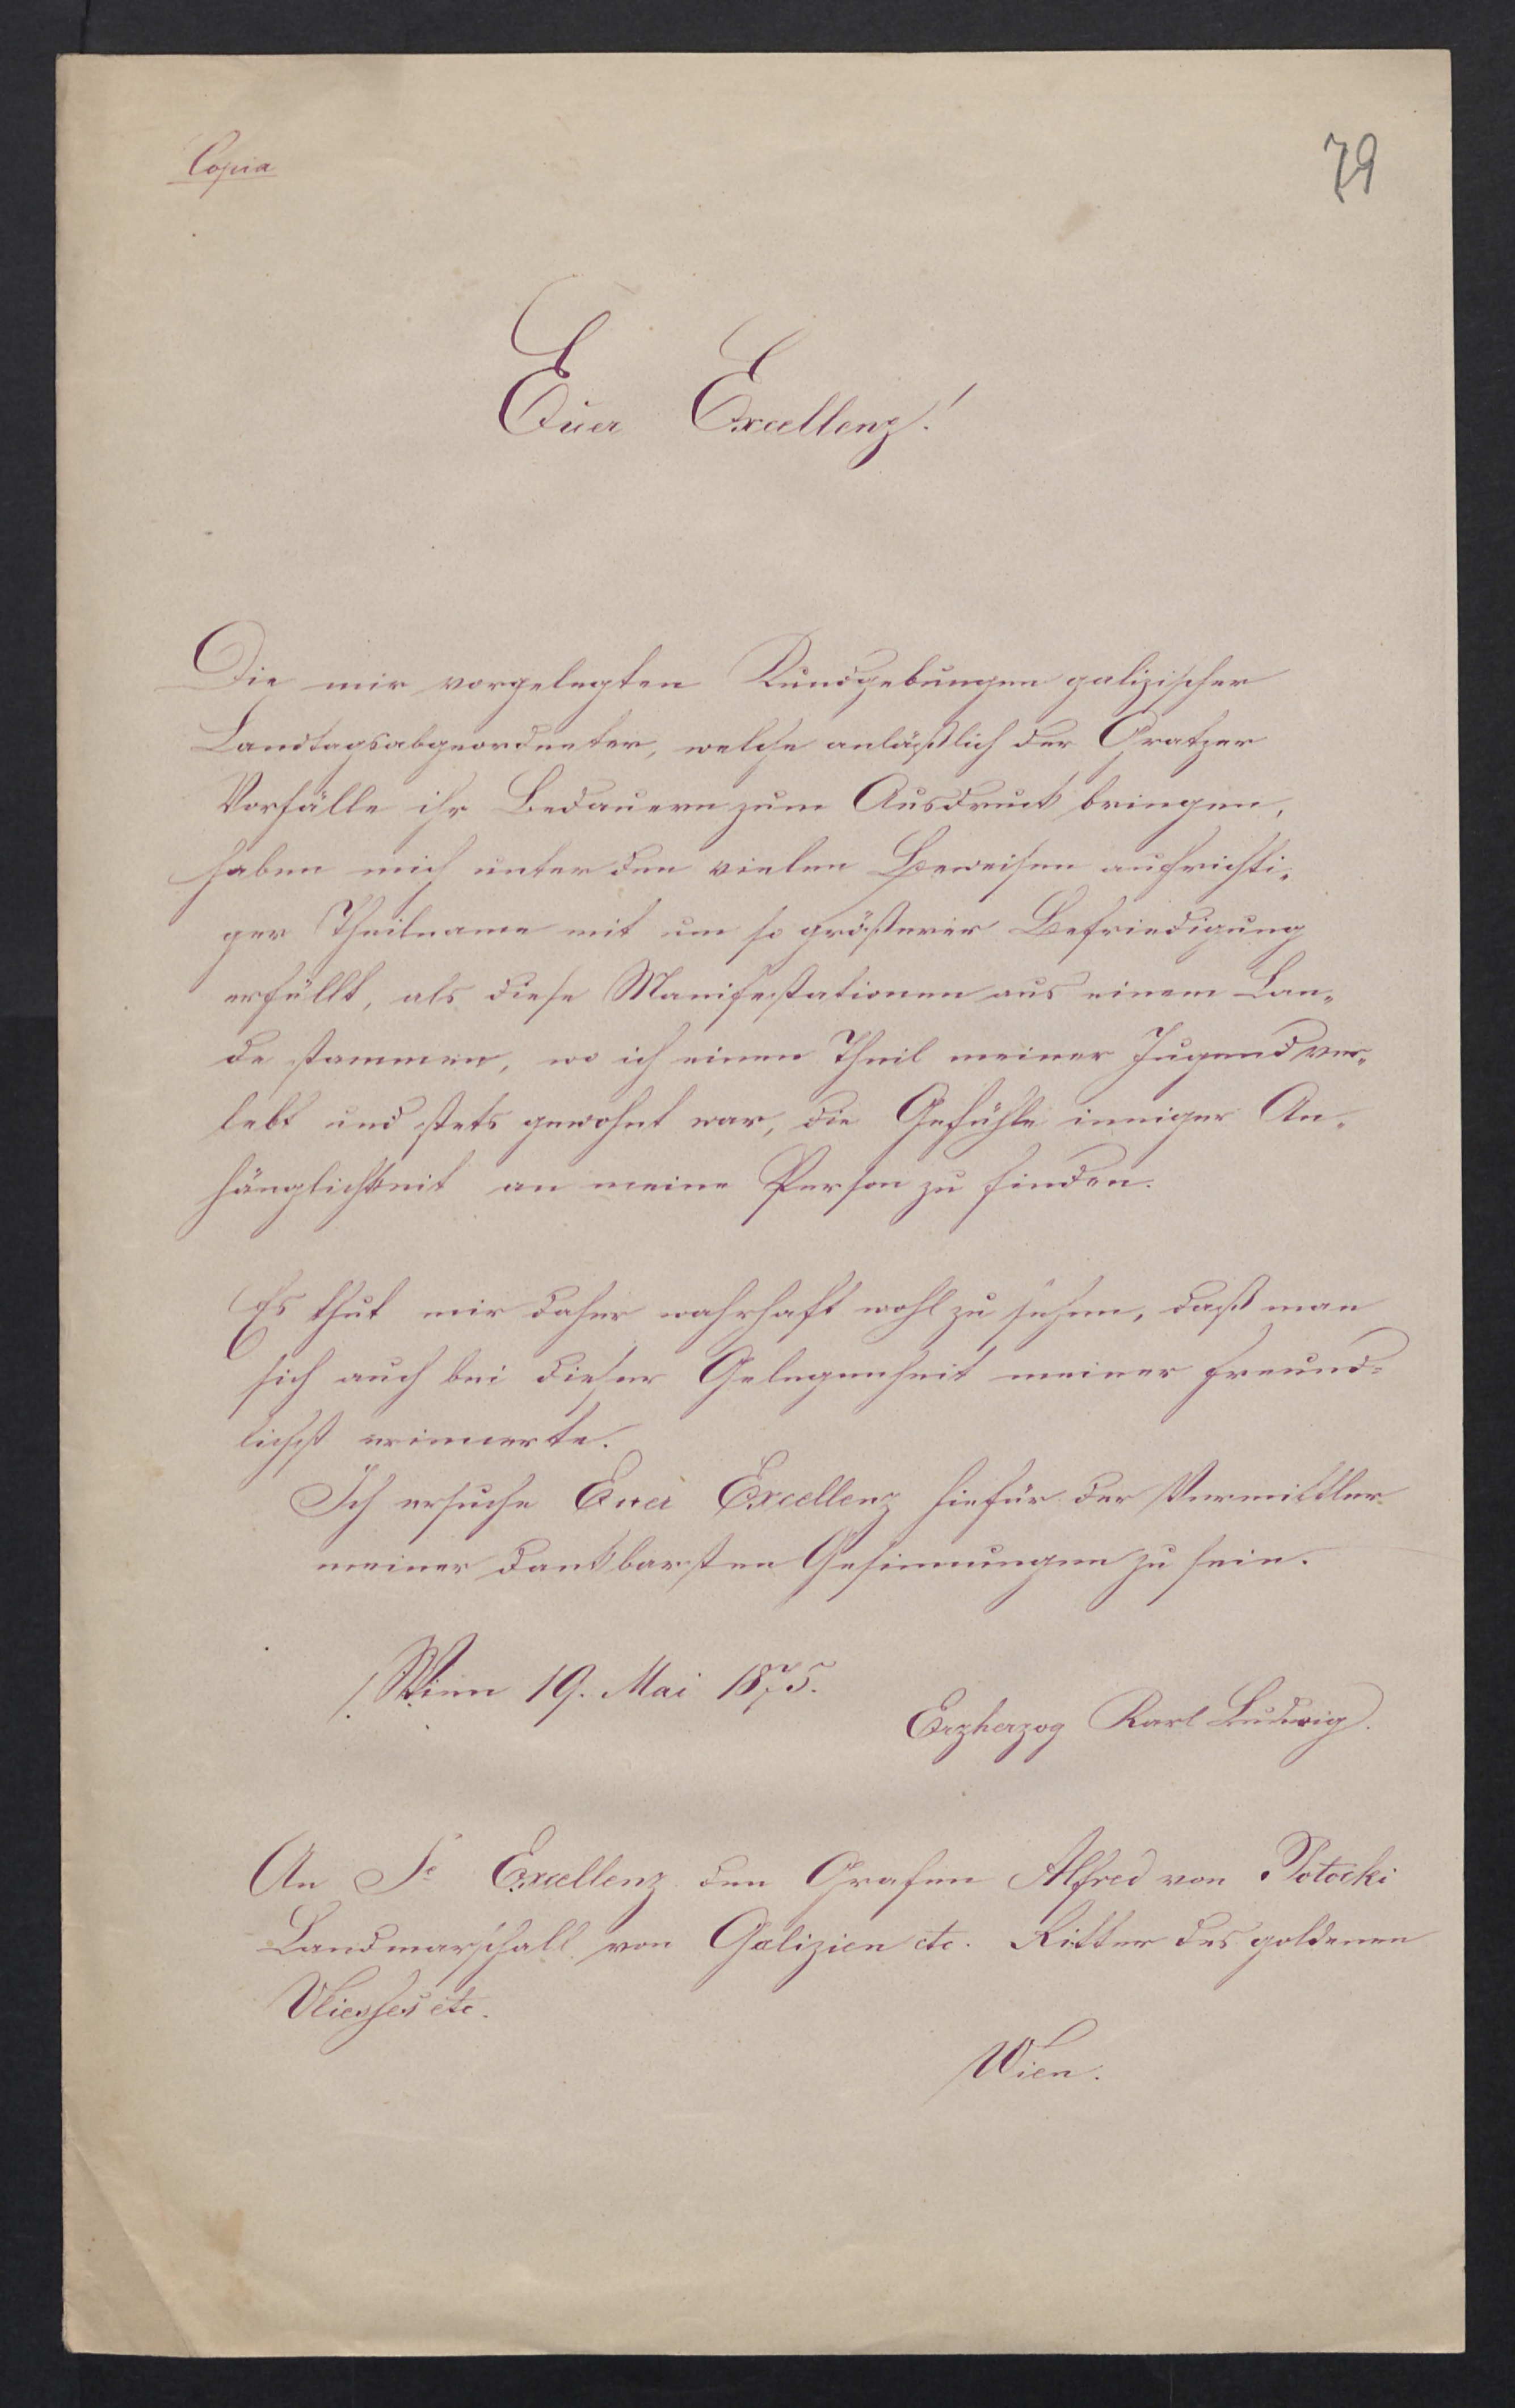 Copia
79
Euer Excellenz!
Die mir vorgelegten Kundgebungen galizischer
Landtagsabgeordneter, welche anläßlich der Gratzer
Vorfälle ihr Bedauern zum Ausdruck bringen,
haben mich unter den vielen Beweisen aufrichti„
ger Theilname mit um so größerer Befriedigung
erfüllt, als diese Manifestationen aus einem Lan„
de stammen, wo ich einen Theil meiner Jugend ver„
lebt und stets gewohnt war, die Gefühle inniger An„
hänglichkeit an meine Person zu finden.
Es thut mir daher wahrhaft wohl zu sehen, daß man
sich auch bei dieser Gelegenheit meiner freund=
lichst erinnerte.
Ich ersuche Euer Excellenz hiefür der Vermittler
meiner dankbarsten Gesinnungen zu sein.
Wien 19. Mai 1875.
Erzherzog Karl Ludwig.
An Se Excellenz den Grafen Alfred von Potocki
Landmarschall von Galizien etc. Ritter des goldenen
Vliesses etc.
Wien.